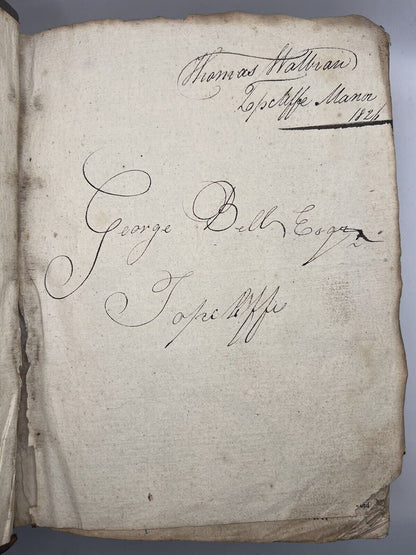 Thomas Walbran
Topcliffe Manor
1824
George Bell Esqr
Topcliffe